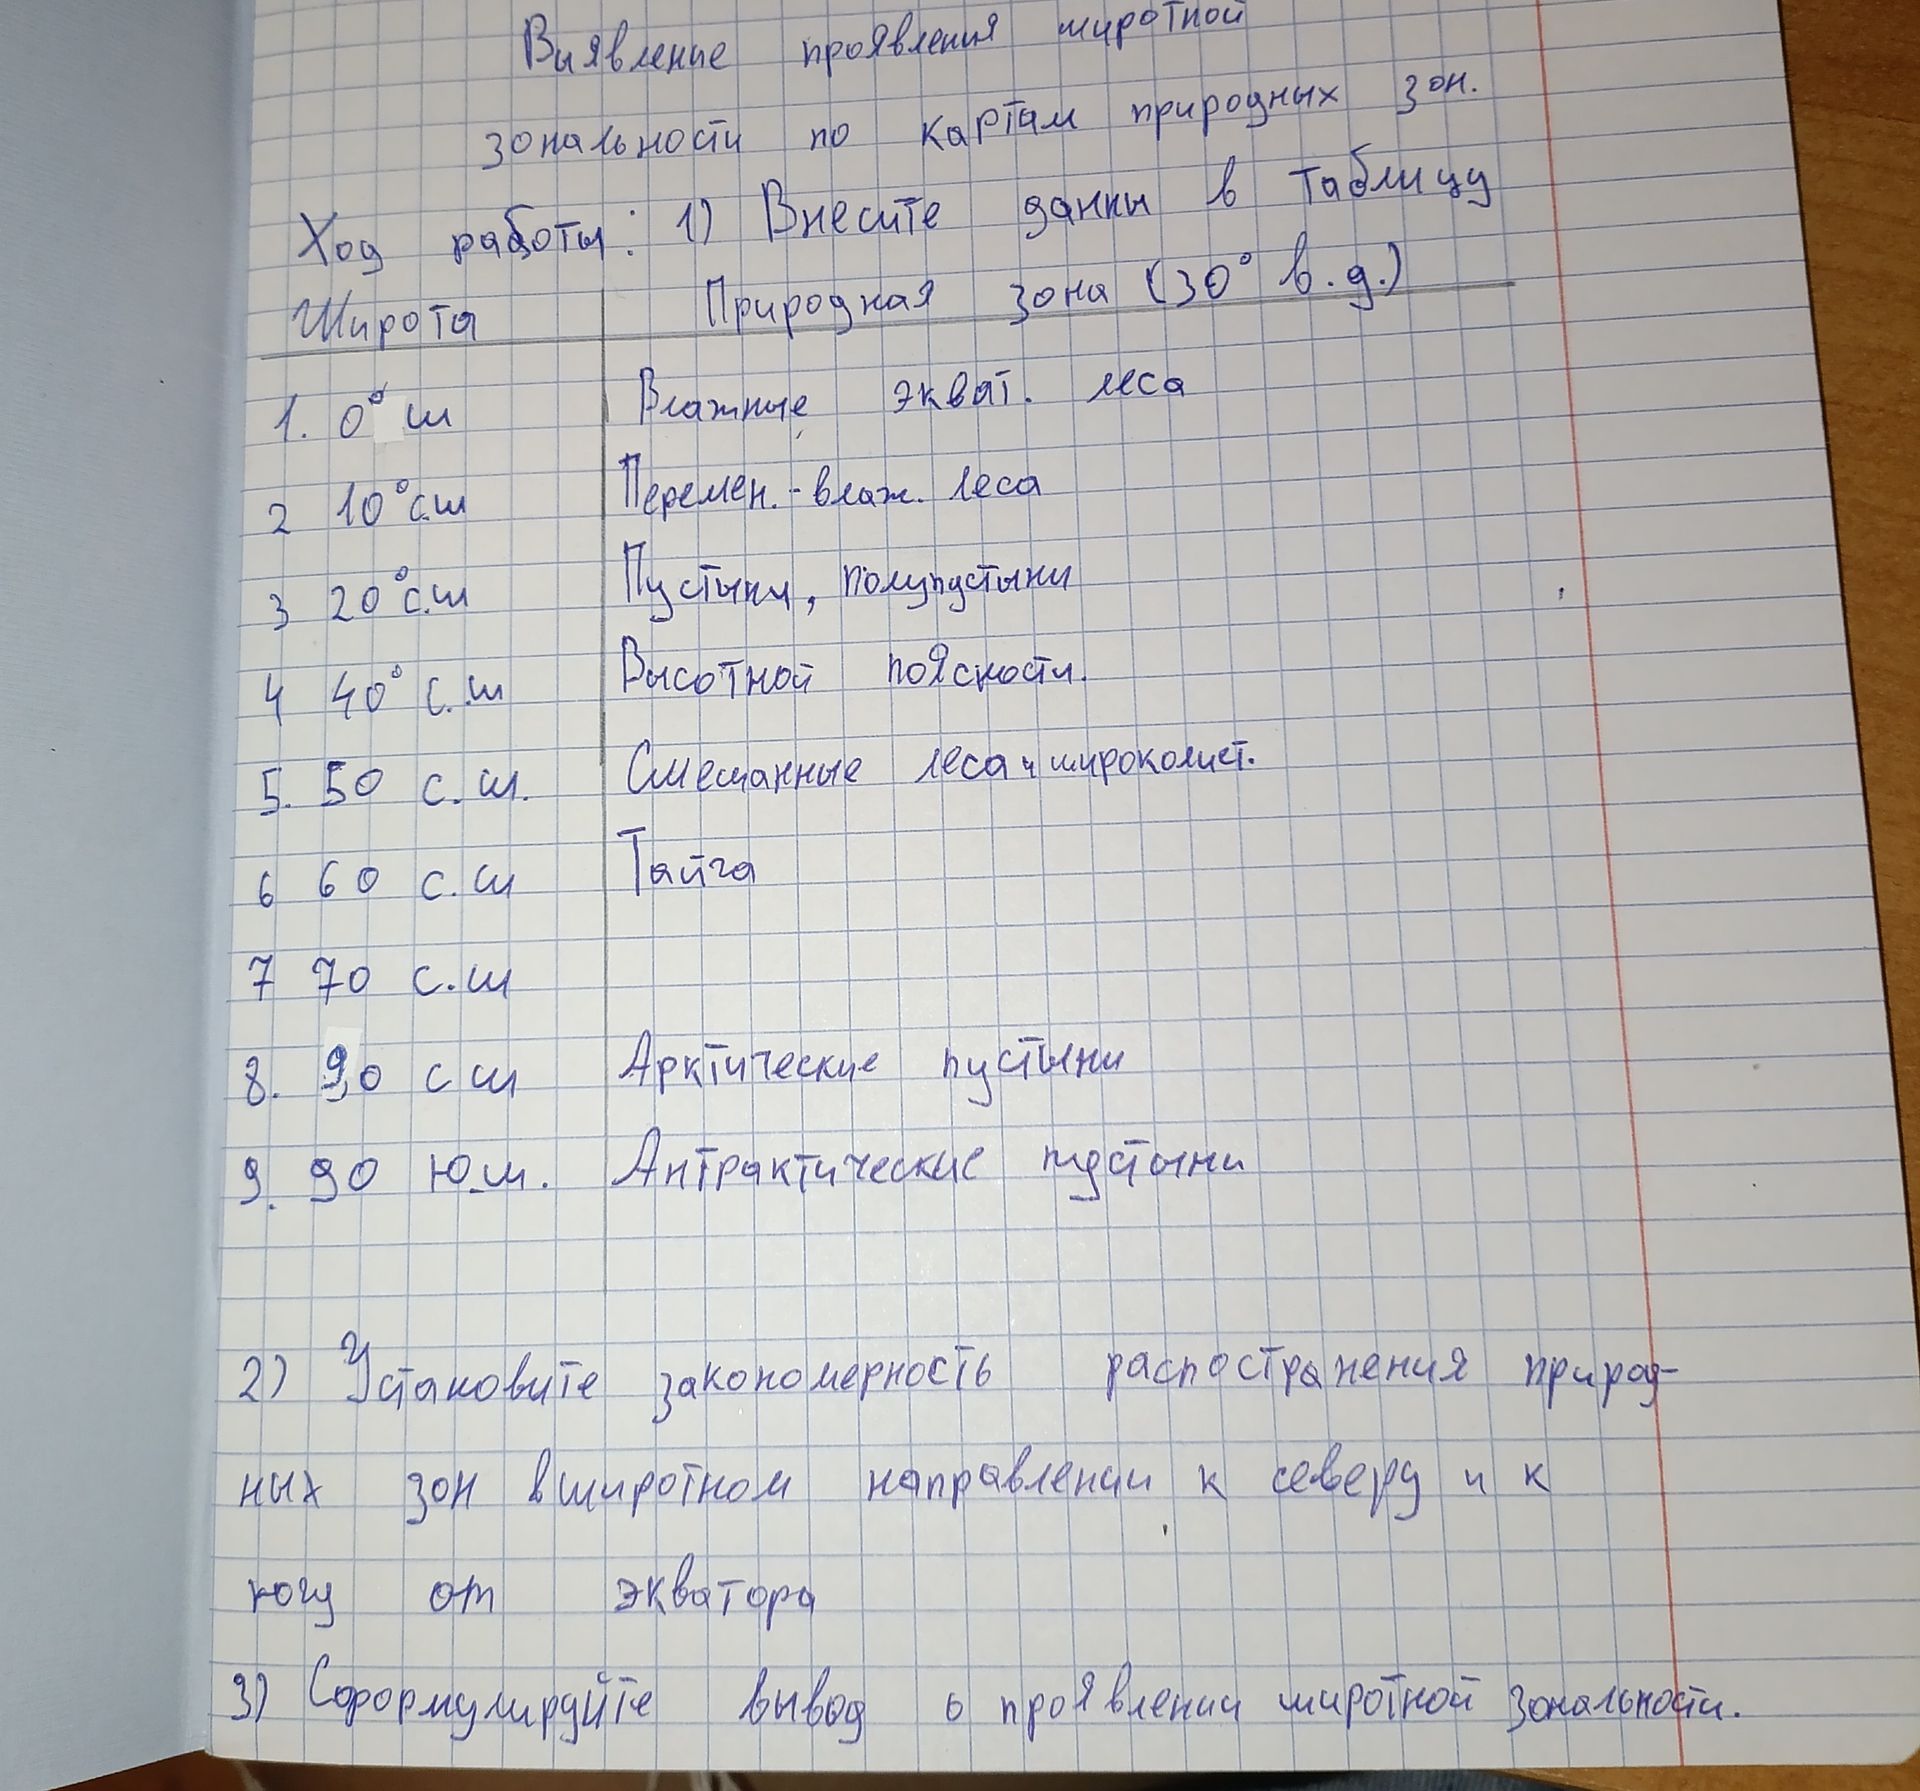 Выявление проявления широтной
зональности по картам природных зон.
Ход работы: 1) Внесите данны в таблицу
Широта Природная зона (30° в.д.)
1. 0° ш Влажные экват. леса
2 10° с.ш Перемен.-влаж. леса
3 20° с.ш Пустыни, полупустыни
4 40° с.ш Высотной поясности.
5. 50 с.ш. Смешанные леса и широколист.
6 60 с.ш Тайга
7 70 с.ш
8. 90 с ш Арктические пустыни
9. 90 ю.ш. Антрактические пустыни
2) Установите закономерность распостранения природ-
ных зон в широтном направлении к северу и к
югу от экватора
3) Сформулируйте вывод о проявлении широтной зональности.